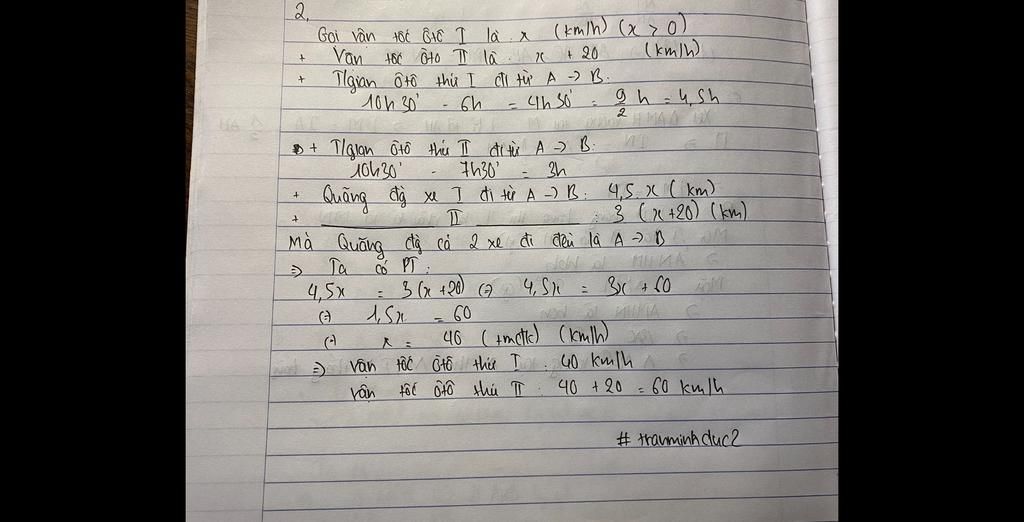 2,
Gọi vận tốc ôtô I là x (km/h) (x > 0)
+ Vận tốc ôtô II là x + 20 (km/h)
+ T/gian ôtô thứ I đi từ A -> B:
10h30' - 6h = 4h30' = 9/2 h = 4,5h
+ T/gian ôtô thứ II đi từ A -> B:
10h30' - 7h30' = 3h
+ Quãng đg xe I đi từ A -> B: 4,5.x (km)
+ ______ II ______ : 3 (x+20) (km)
Mà Quãng đg cả 2 xe đi đều là A -> B
=> Ta có PT:
4,5x = 3(x+20) (=) 4,5x = 3x + 60
(=) 1,5x = 60
(=) x = 40 (+mđk) (km/h)
=> vận tốc ôtô thứ I : 40 km/h
vận tốc ôtô thứ II : 40 + 20 = 60 km/h
# tranminhduc2